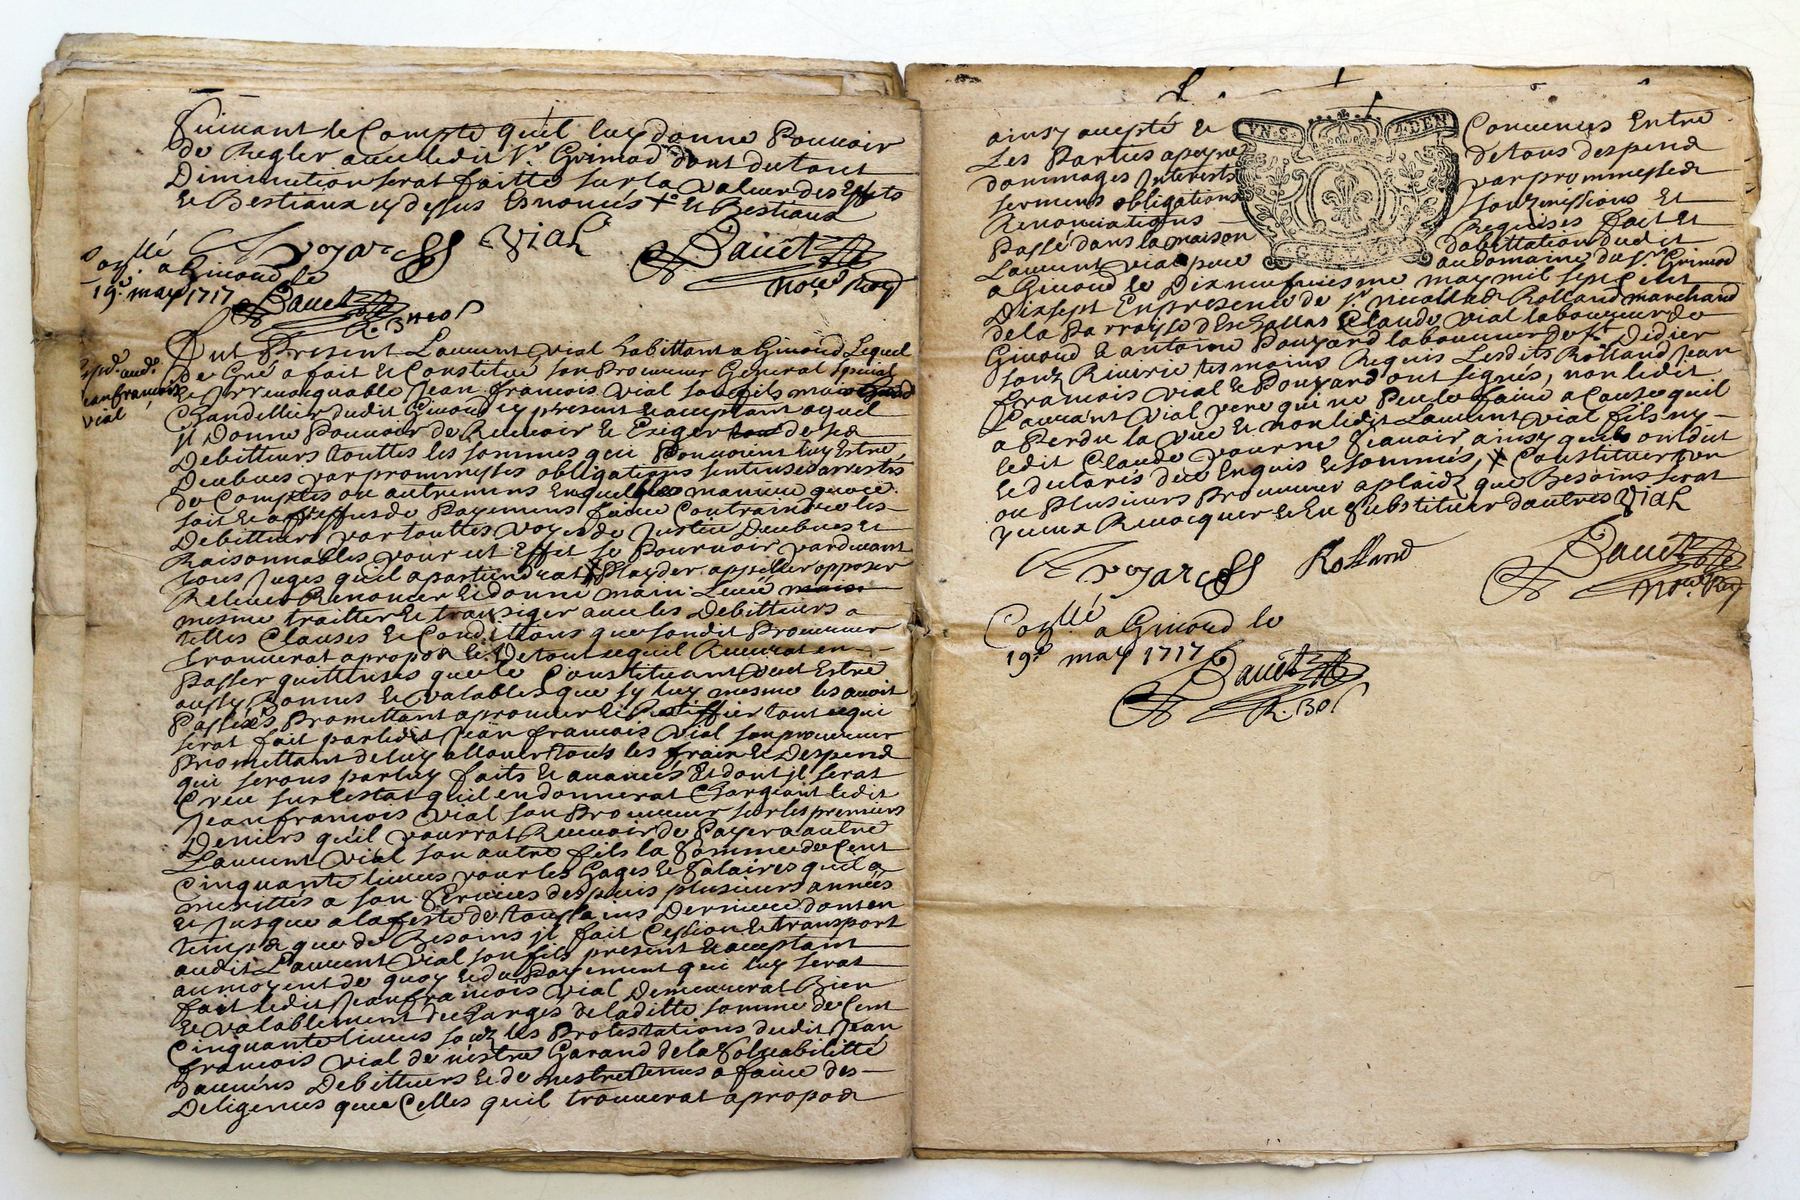 Suivant le Compte quil luy donne Pouvoir
de Regler avec ledit Sr Grimod dont du tout
Diminution serat faitte sur la valeur des Effets
& Bestiaux cy dessus Enoncés & Bestiaux
Vial
Bauet
nore Roy
Conllé
a Givord le
19e may 1717
Bauet
Expd. aud.
Jean françois
vial
Fut Present Laurent Vial habittant a Givord Lequel
de Gré a fait & Constitué son Procureur General special
& Jrrevocquable Jean francois Vial son fils
Chandellier dudit Givord cy present & acceptant aquel
jl Donne Pouvoir de Recevoir & Exiger de ses
Debitteurs touttes les sommes qui Pouvoient luy Estre
Deubues par prommesses obligations sentenses arrestés
de Comptes ou autremens En quelque maniere que ce
soit & a reffus de Payemens faire Contraindre les
Debitteurs par touttes voyes de Justice Deubues et
Raisonnables pour cet Effet se Pourvoir pardevant
tous Juges quil apartiendrat Playder appeller opposer
Relever Renoncer & donner main Levée
mesme traitter & transiger avec les Debitteurs a
telles Clauses & Conditions que sondit Procureur
trouverat apropos & De tout ce quil Recevrat en
Passer quittenses que le Constituant veut Estre
aussy Bonnes & valables que sy luy mesme les avoit
Passées Promettant aprouver & Ratiffier tout ce qui
serat fait par ledit Jean francois Vial son procureur
Promettant de luy allouer tous les frais & Despend
qui serons par luy faits & avancés & dont jl serat
Creu sur lestat quil en donnerat Chargeant ledit
Jean francois Vial son Procureur sur les premiers
Deniers quil pourrat Recevoir de Payer a autre
Laurent Vial son autre fils la somme de Cent
Cinquante livres pour les Gages & Salaires quil a
merittés a son Services despuis plusieurs années
& Jusque a la feste de toussains Derniere dont en
temps que de Besoins jl fait Cession & transport
audit Laurent Vial son fils present & acceptant
au moyent de quoy & du Payement qui luy serat
fait ledit Jean francois Vial Demeurerat Bien
& valablement decharges de laditte somme de Cent
Cinquante livres souz les Protestations dudit Jean
francois Vial de nestre Garand de la Solvabilitté
daucuns Debitteurs & de nestre tenus a faire des
Deligences que Celles quil trouverat apropos
ainsy accepté & Convenus Entre
Les Parties a peyne de tous despend
dommages Jnterests par prommesses
sermens obligations souzmissions Et
Renonciations Requises fait Et
Passé dans la maison dabittation dudit
Laurent Vial pere au domaine du Sr Grimod
a Givord le Dixneufviesme may mil sept Cent
Dixsept En presence de Sr nicollas Rolland marchand
de la Parroysse dEschallas Claude Vial laboureur de
Givord & antoine Pouyard laboureur de St Didier
souz Riverie tesmoins Requis Lesdits Rolland Jean
francois Vial & Pouyard ont signés, non ledit
Laurant Vial pere qui ne Peu le faire a Cause quil
a Perdu la vue & non ledit Laurent Vial fils ny
ledit Claude pour ne scavoir ainsy quils ont dit
& declarés due Enquis & sommés, Constituer un
ou Plusieurs Procureur a plaids que Besoins serat
yceux Revocquer & En Substituer dautres Vial
Rolland
Bauet
nore Roy
Conllé a Givord le
19e may 1717
Bauet